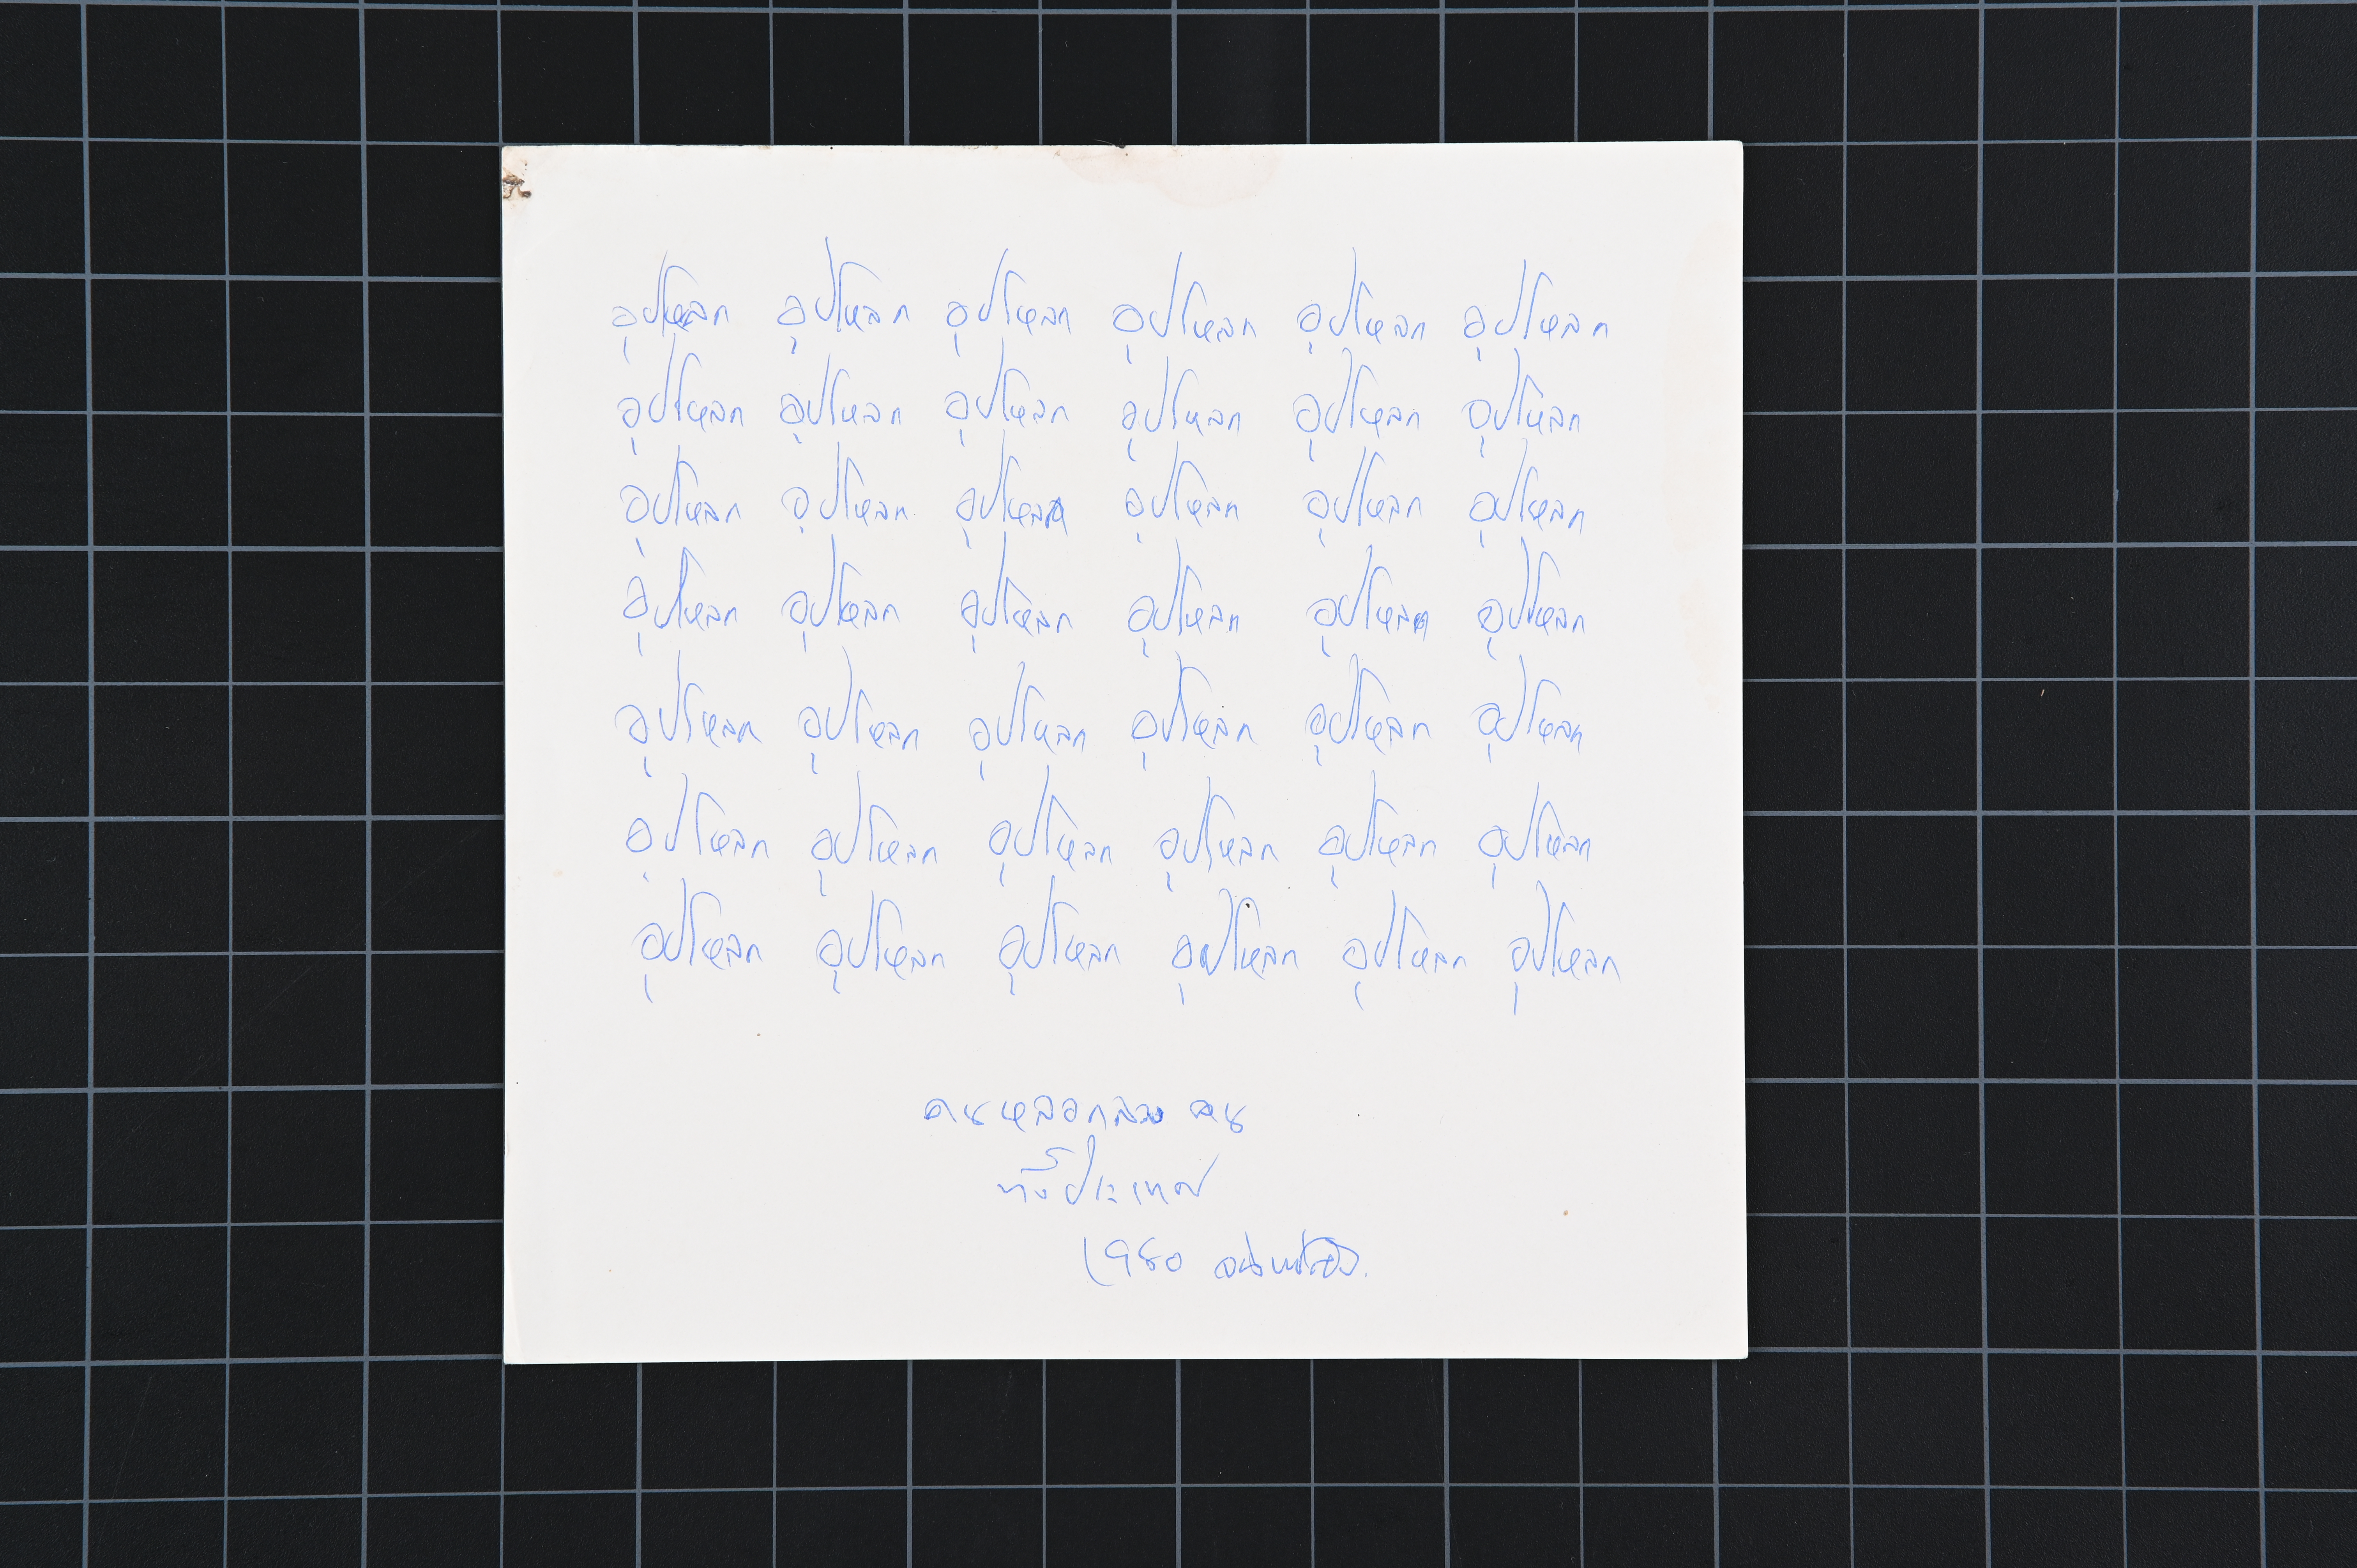 อุปโหลก อุปโหลก อุปโหลก อุปโหลก อุปโหลก อุปโหลก
อุปโหลก อุปโหลก อุปโหลก อุปโหลก อุปโหลก อุปโหลก
อุปโหลก อุปโหลก อุปโหลก อุปโหลก อุปโหลก อุปโหลก
อุปโหลก อุปโหลก อุปโหลก อุปโหลก อุปโหลก อุปโหลก
อุปโหลก อุปโหลก อุปโหลก อุปโหลก อุปโหลก อุปโหลก
อุปโหลก อุปโหลก อุปโหลก อุปโหลก อุปโหลก อุปโหลก
อุปโหลก อุปโหลก อุปโหลก อุปโหลก อุปโหลก อุปโหลก
คนหลอกลวง คน
ทั้งประเทศ